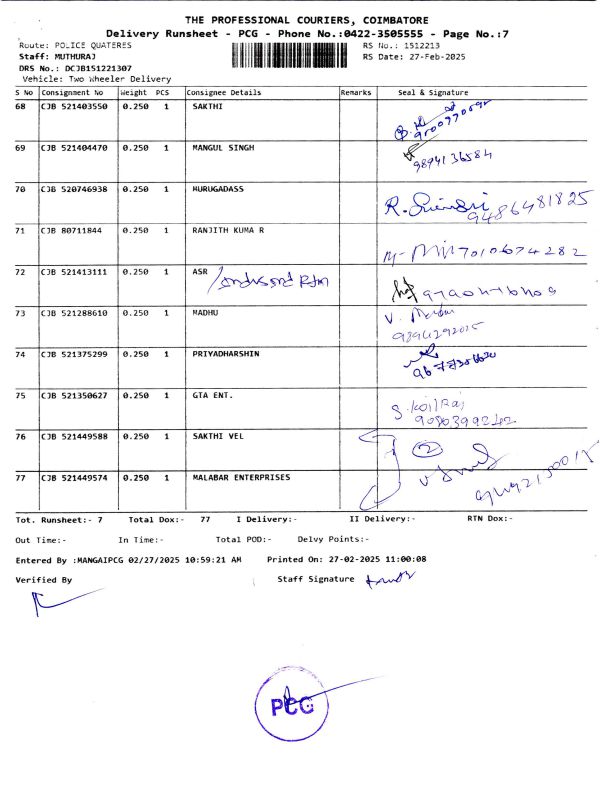 THE PROFESSIONAL COURIERS, COIMBATORE
Delivery Runsheet - PCG - Phone No.:0422-3505555 - Page No.:7
Route: POLICE QUATERES RS No.: 1512213
Staff: MUTHURAJ RS Date: 27-Feb-2025
DRS No.: DCJB151221307
Vehicle: Two Wheeler Delivery
S No Consignment No Weight PCS Consignee Details Remarks Seal & Signature
68 CJB 521403550 0.250 1 SAKTHI
69 CJB 521404470 0.250 1 MANGUL SINGH 9894136584
70 CJB 520746938 0.250 1 MURUGADASS 9486481825
71 CJB 80711844 0.250 1 RANJITH KUMA R 7010674282
72 CJB 521413111 0.250 1 ASR
73 CJB 521288610 0.250 1 MADHU
74 CJB 521375299 0.250 1 PRIYADHARSHIN
75 CJB 521350627 0.250 1 GTA ENT. 9080399242
76 CJB 521449588 0.250 1 SAKTHI VEL 2
77 CJB 521449574 0.250 1 MALABAR ENTERPRISES
Tot. Runsheet:- 7 Total Dox:- 77 I Delivery:- II Delivery:- RTN Dox:-
Out Time:- In Time:- Total POD:- Delvy Points:-
Entered By :MANGAIPCG 02/27/2025 10:59:21 AM Printed On: 27-02-2025 11:00:08
Verified By Staff Signature
PCG